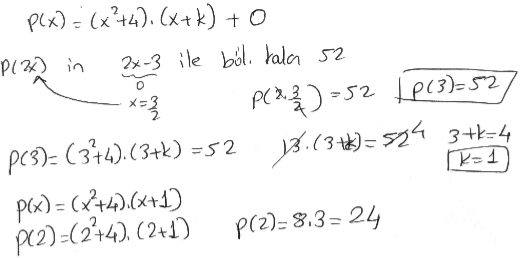 P(x) = (x²+4).(x+k) + 0
P(2x) in 2x-3 ile böl. kalan 52
0
x=3/2
P(2.3/2) = 52 P(3)=52
P(3)= (3²+4).(3+k) = 52 13.(3+k) = 52 4 3+k=4
k=1
P(x) = (x²+4).(x+1)
P(2) = (2²+4).(2+1) P(2)= 8.3 = 24